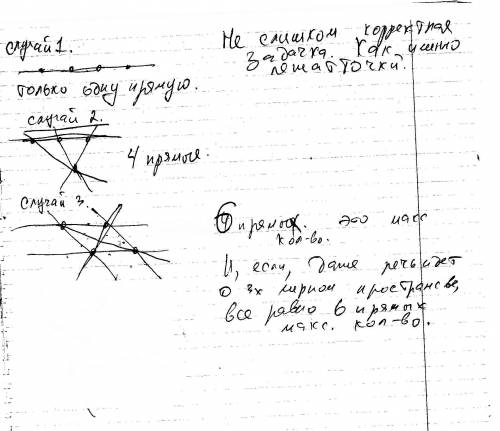 случай 1.
только одну прямую.
случай 2.
4 прямые.
случай 3.
Не слишком корректная
задачка. Как именно
лежат точки.
6 прямых. это макс
кол-во.
И, если, даже речь идет
о 3х мерном пространстве,
все равно 6 прямых
макс. кол-во.